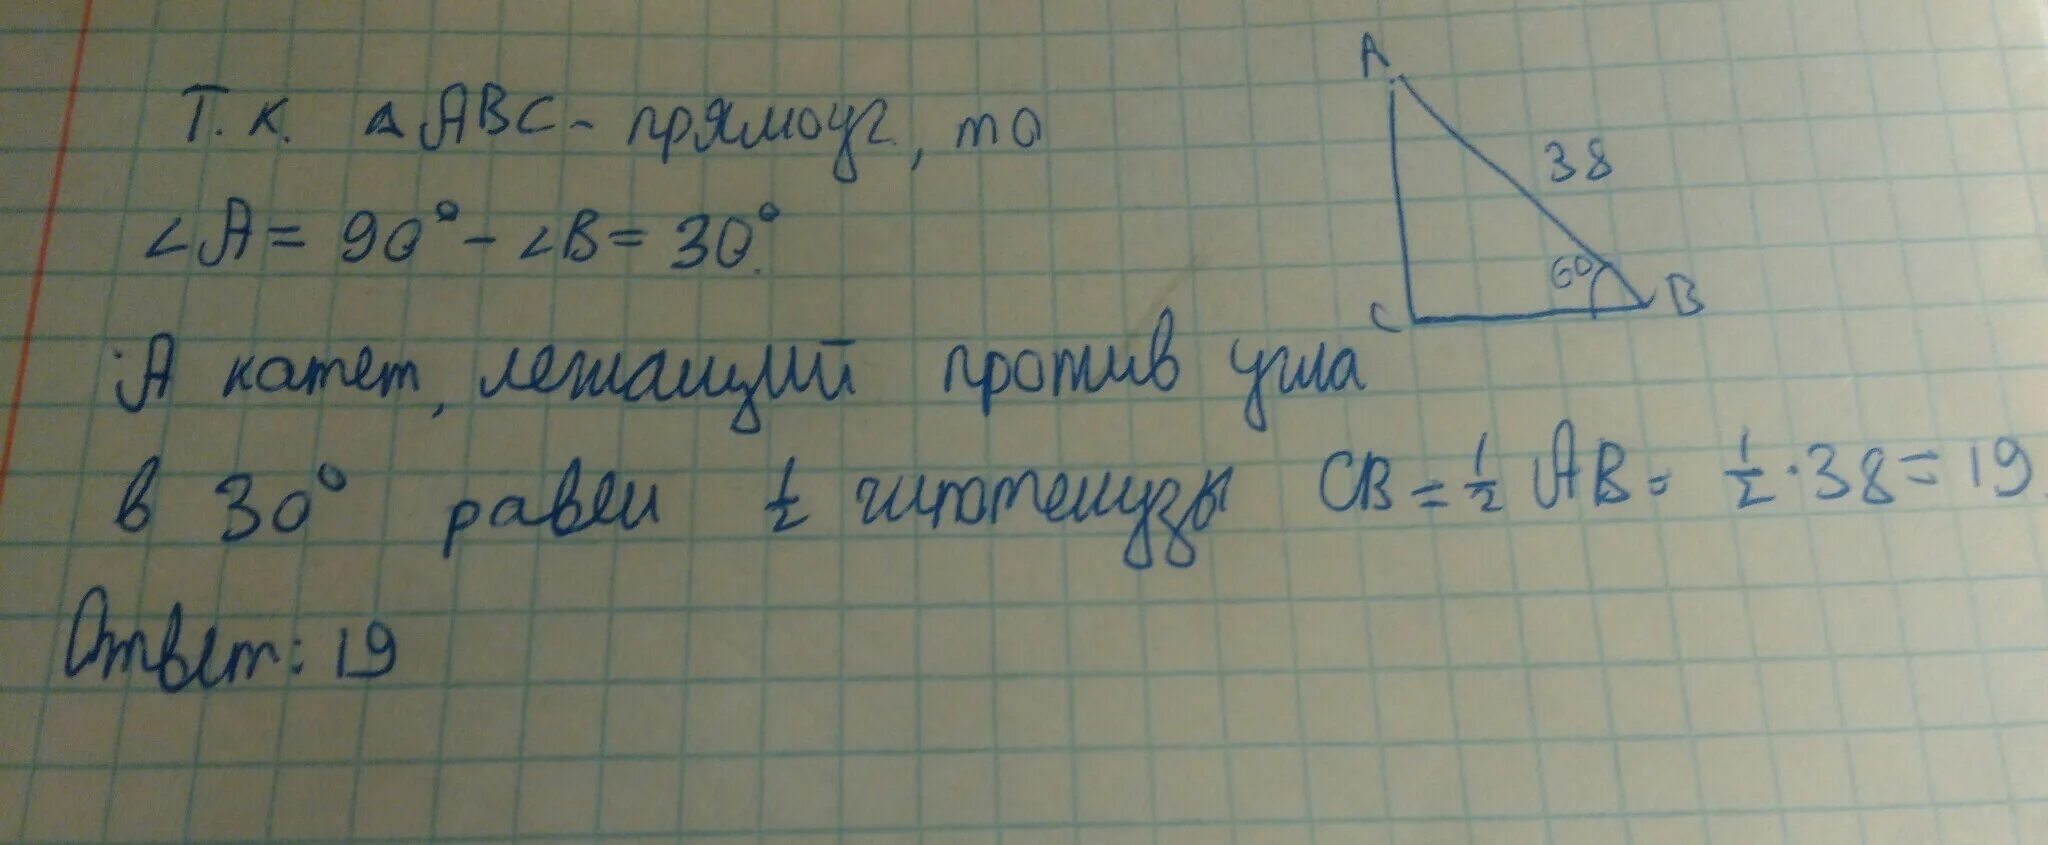 Т.к. △ABC - прямоуг, то
∠A = 90° - ∠B = 30°.
А катет, лежащий против угла
в 30° равен 1/2 гипотенузы CB = 1/2 AB = 1/2 · 38 = 19.
Ответ: 19
A
38
60
C
B